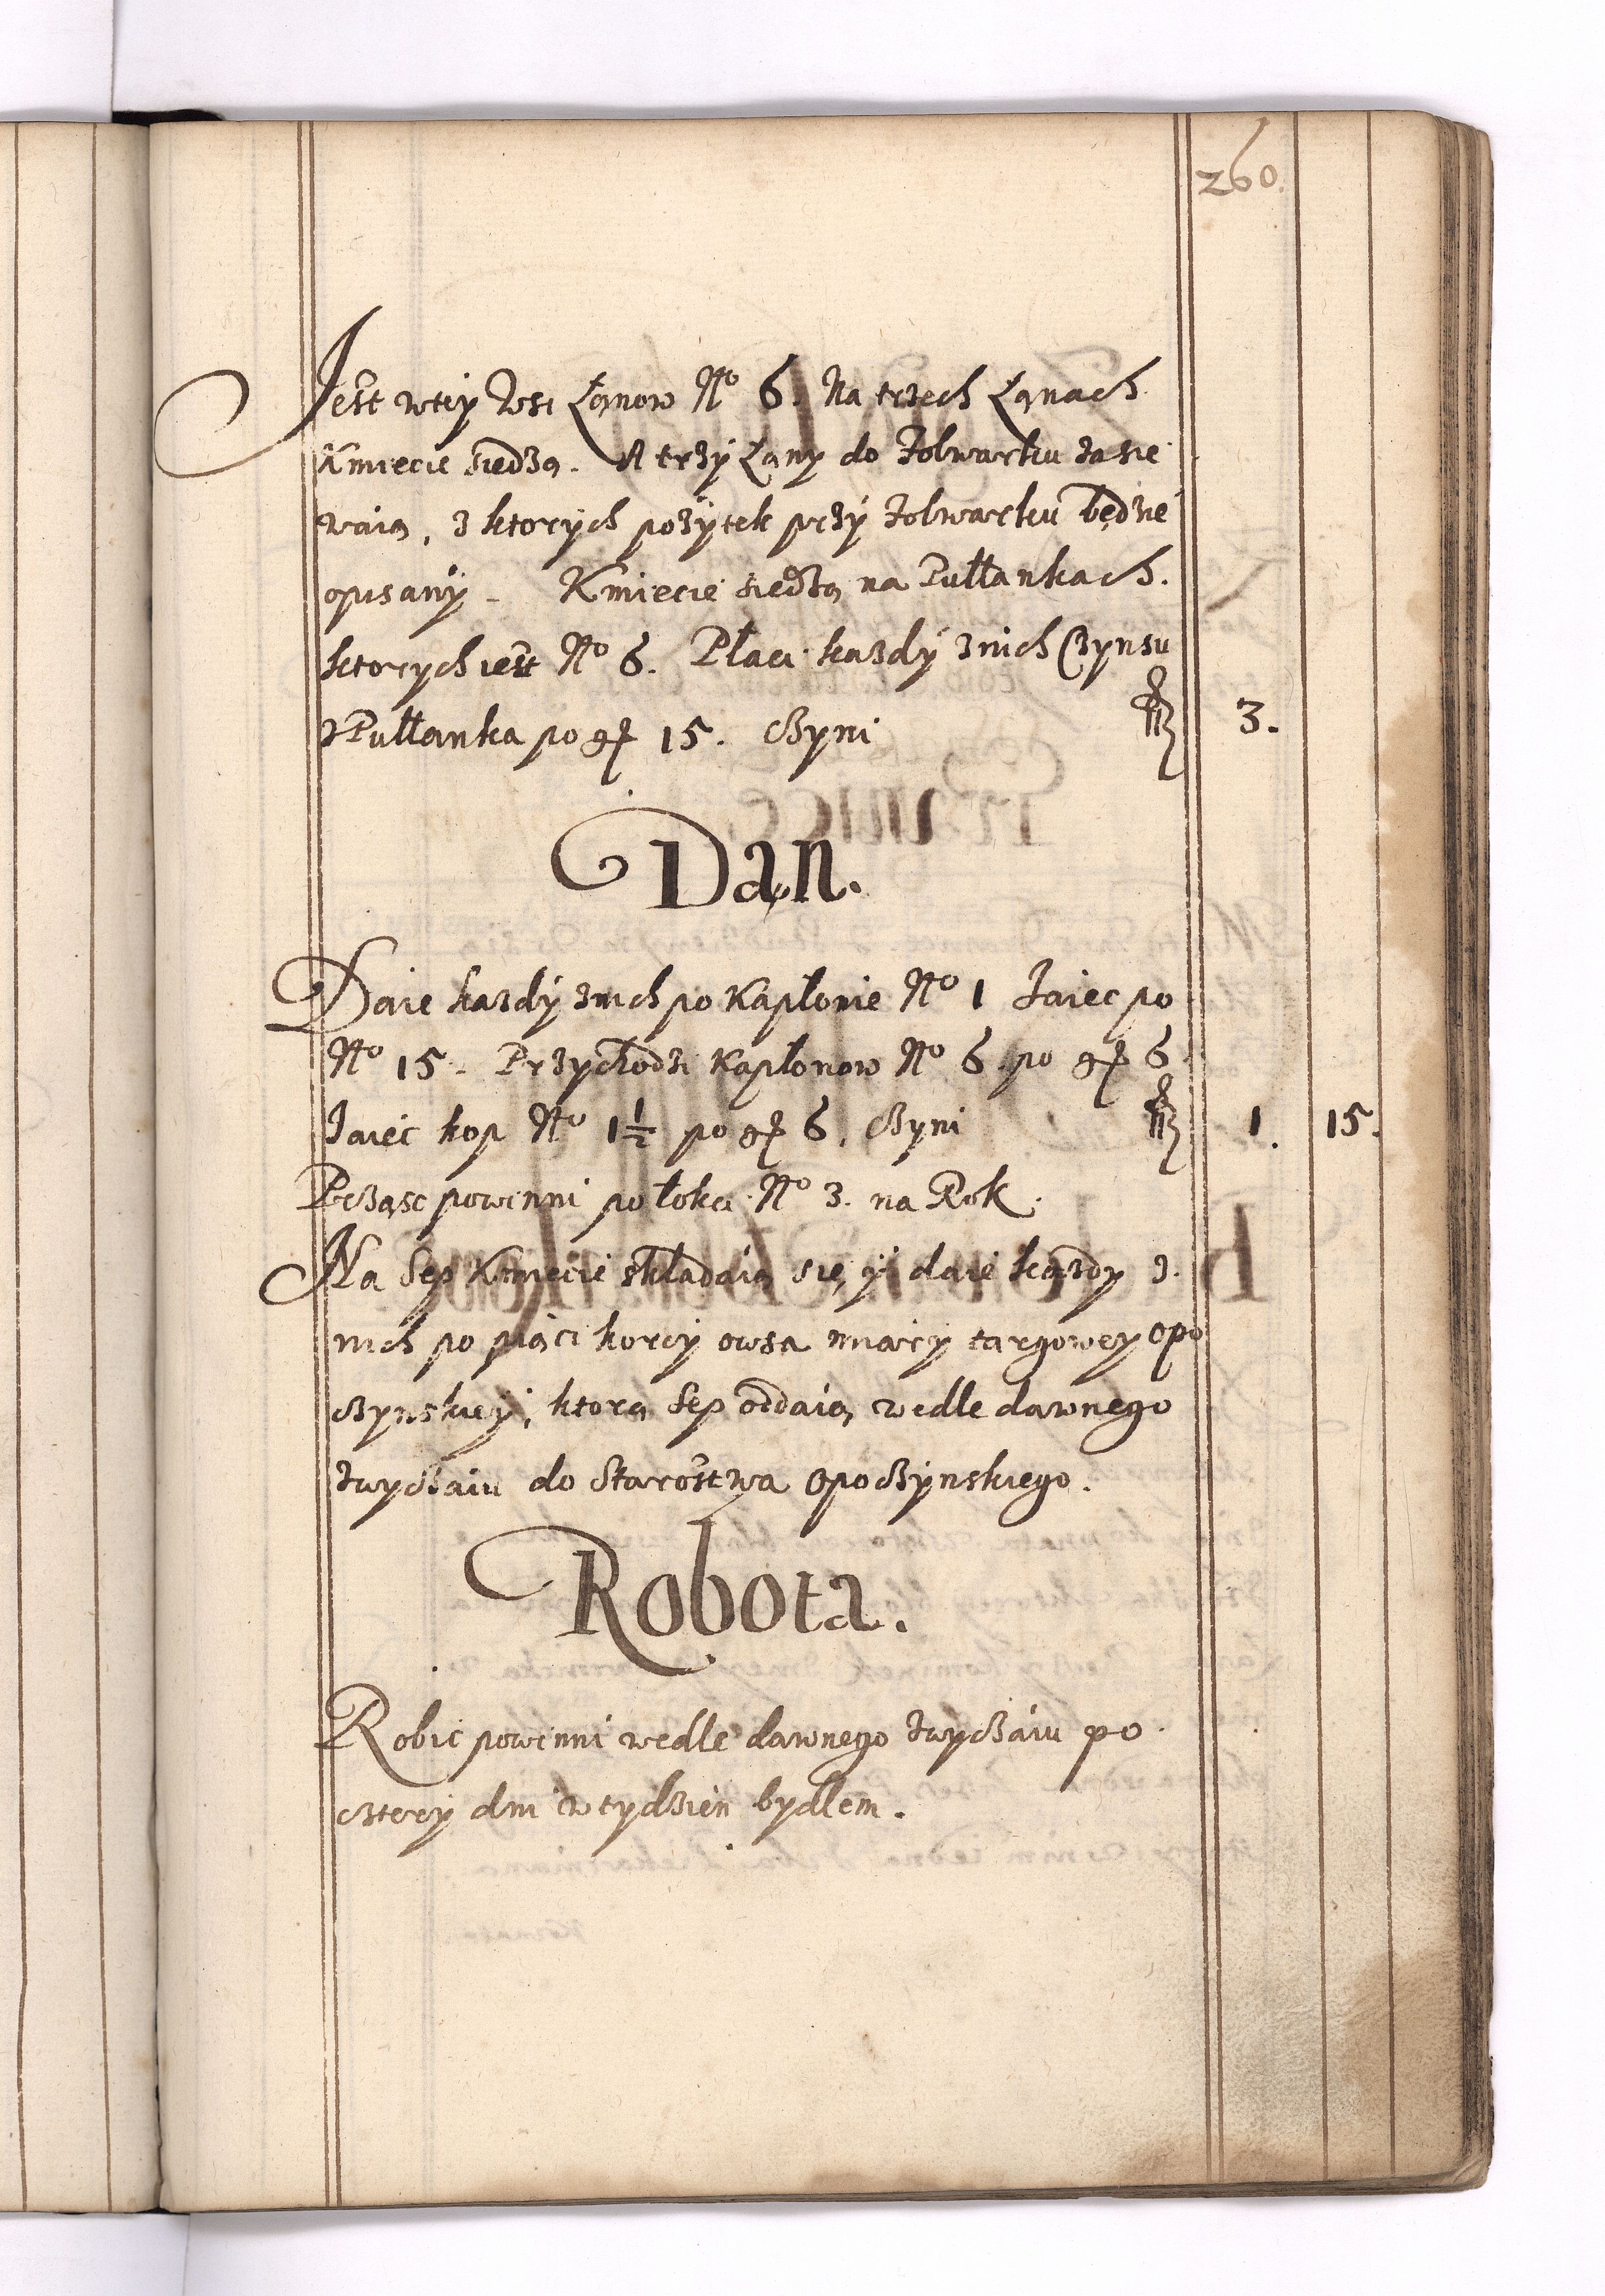 260.
Jest wtey Wsi Łanow No 6. Na trzech Łanach
Kmiecie siedzą. A trzy Łany do Folwarku zasie
waią, z ktorych pozytek przy Folwarku będzie
opisany. Kmiecie siedzą na Pułłankach.
ktorych iest No 6. Płaci kazdy znich Czynsu
z Pułłanka po gr 15. Czyni fl 3.
Dan.
Daie kazdy znich po Kapłonie No 1 Jaiec po
No 15. Przychodzi Kapłonow No 6. po gr 6.
Jaiec kop No 1½ po gr 6. Czyni fl 1. 15.
Prząsc powinni po łokci No 3. na Rok.
Na Sep Kmiecie składaią się, y daie kazdy z
nich po piąci korcy owsa miary targowey opo
czynskiey, ktorą Sep oddaią wedle dawnego
zwyczaiu do Starostwa Opoczynskiego.
Robota.
Robic powinni wedle dawnego zwyczaiu po
cztery dni w tydzien bydlem.